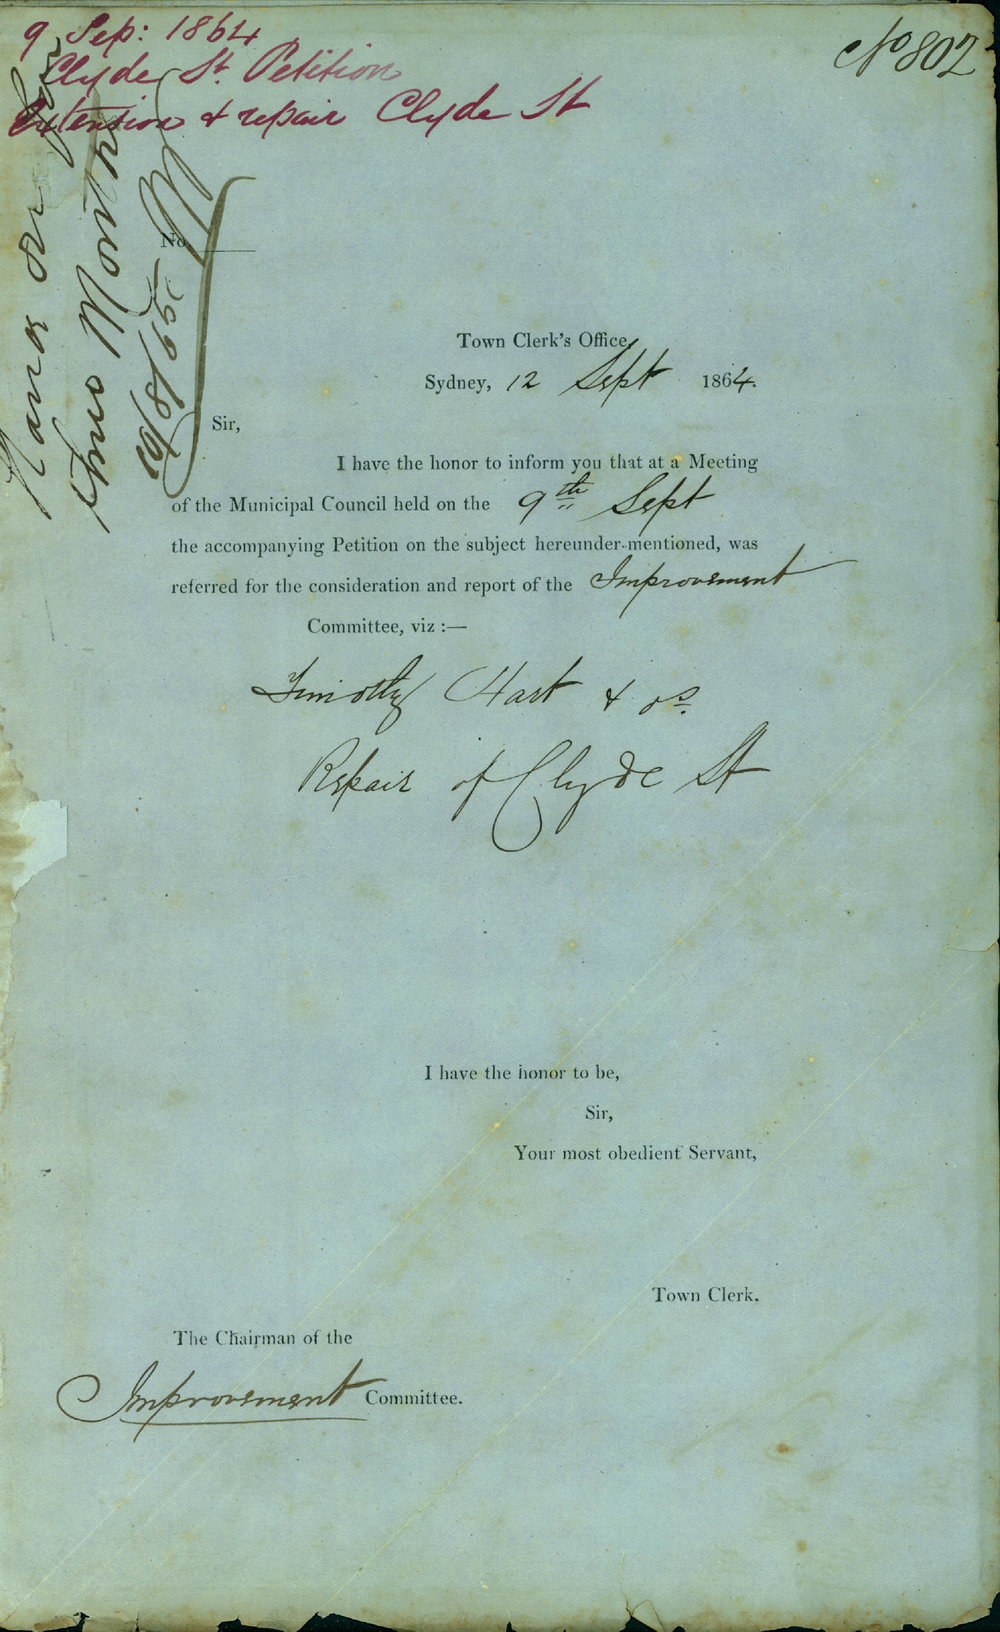 9 Sep: 1864
Clyde St Petition
Extension & repair Clyde St
No 802
No.
Town Clerk's Office,
Sydney, 12 Sept 1864.
Sir,
I have the honor to inform you that at a Meeting
of the Municipal Council held on the 9th Sept
the accompanying Petition on the subject hereunder-mentioned, was
referred for the consideration and report of the Improvement
Committee, viz :—
Timothy Hart & os.
Repair of Clyde St
I have the honor to be,
Sir,
Your most obedient Servant,
Town Clerk.
The Chairman of the
Improvement Committee.